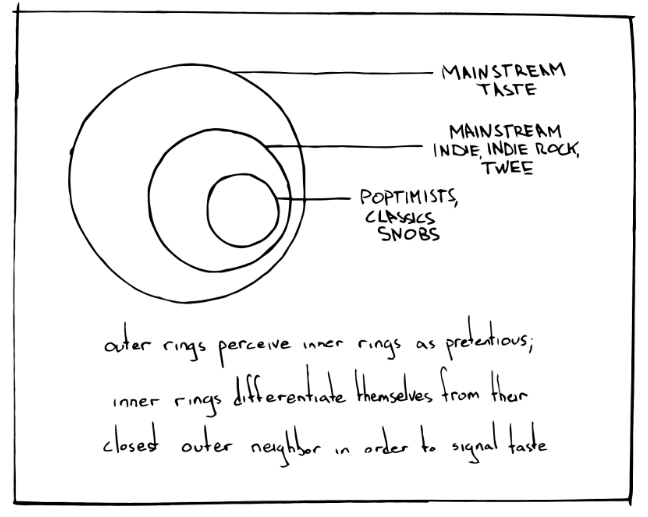 MAINSTREAM
TASTE
MAINSTREAM
INDIE, INDIE ROCK,
TWEE
POPTIMISTS,
CLASSICS
SNOBS
outer rings perceive inner rings as pretentious;
inner rings differentiate themselves from their
closest outer neighbor in order to signal taste